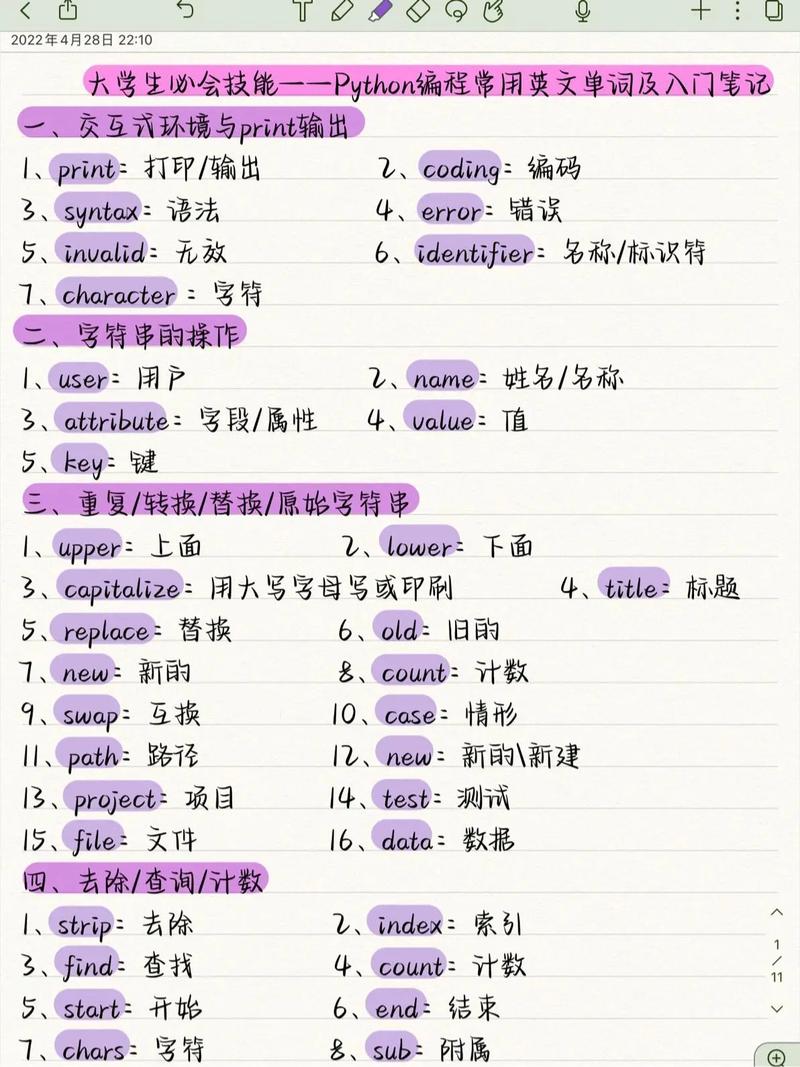 2022年4月28日 22:10
大学生必会技能——Python编程常用英文单词及入门笔记
一、交互式环境与print输出
1、print: 打印/输出 2、coding: 编码
3、syntax: 语法 4、error: 错误
5、invalid: 无效 6、identifier: 名称/标识符
7、character : 字符
二、字符串的操作
1、user: 用户 2、name: 姓名/名称
3、attribute: 字段/属性 4、value: 值
5、key: 键
三、重复/转换/替换/原始字符串
1、upper: 上面 2、lower: 下面
3、capitalize: 用大写字母写或印刷 4、title: 标题
5、replace: 替换 6、old: 旧的
7、new: 新的 8、count: 计数
9、swap: 互换 10、case: 情形
11、path: 路径 12、new: 新的\新建
13、project: 项目 14、test: 测试
15、file: 文件 16、data: 数据
四、去除/查询/计数
1、strip: 去除 2、index: 索引
3、find: 查找 4、count: 计数
5、start: 开始 6、end: 结束
7、chars: 字符 8、sub: 附属
1
/
11